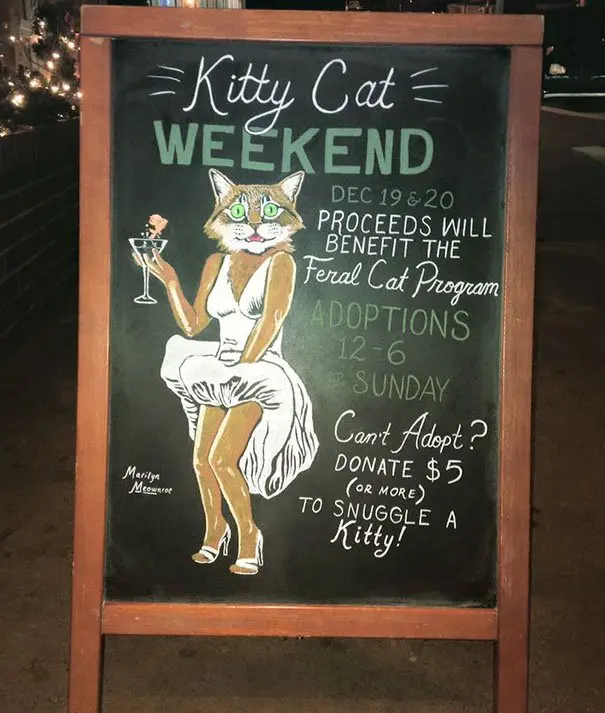 Kitty Cat
WEEKEND
DEC 19 & 20
PROCEEDS WILL
BENEFIT THE
Feral Cat Program
ADOPTIONS
12-6
SUNDAY
Can't Adopt?
DONATE $5
(OR MORE)
TO SNUGGLE A
Kitty!
Marilyn
Meownroe